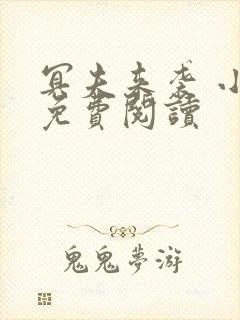 冥夫来袭 小
免費閱讀
鬼鬼夢游